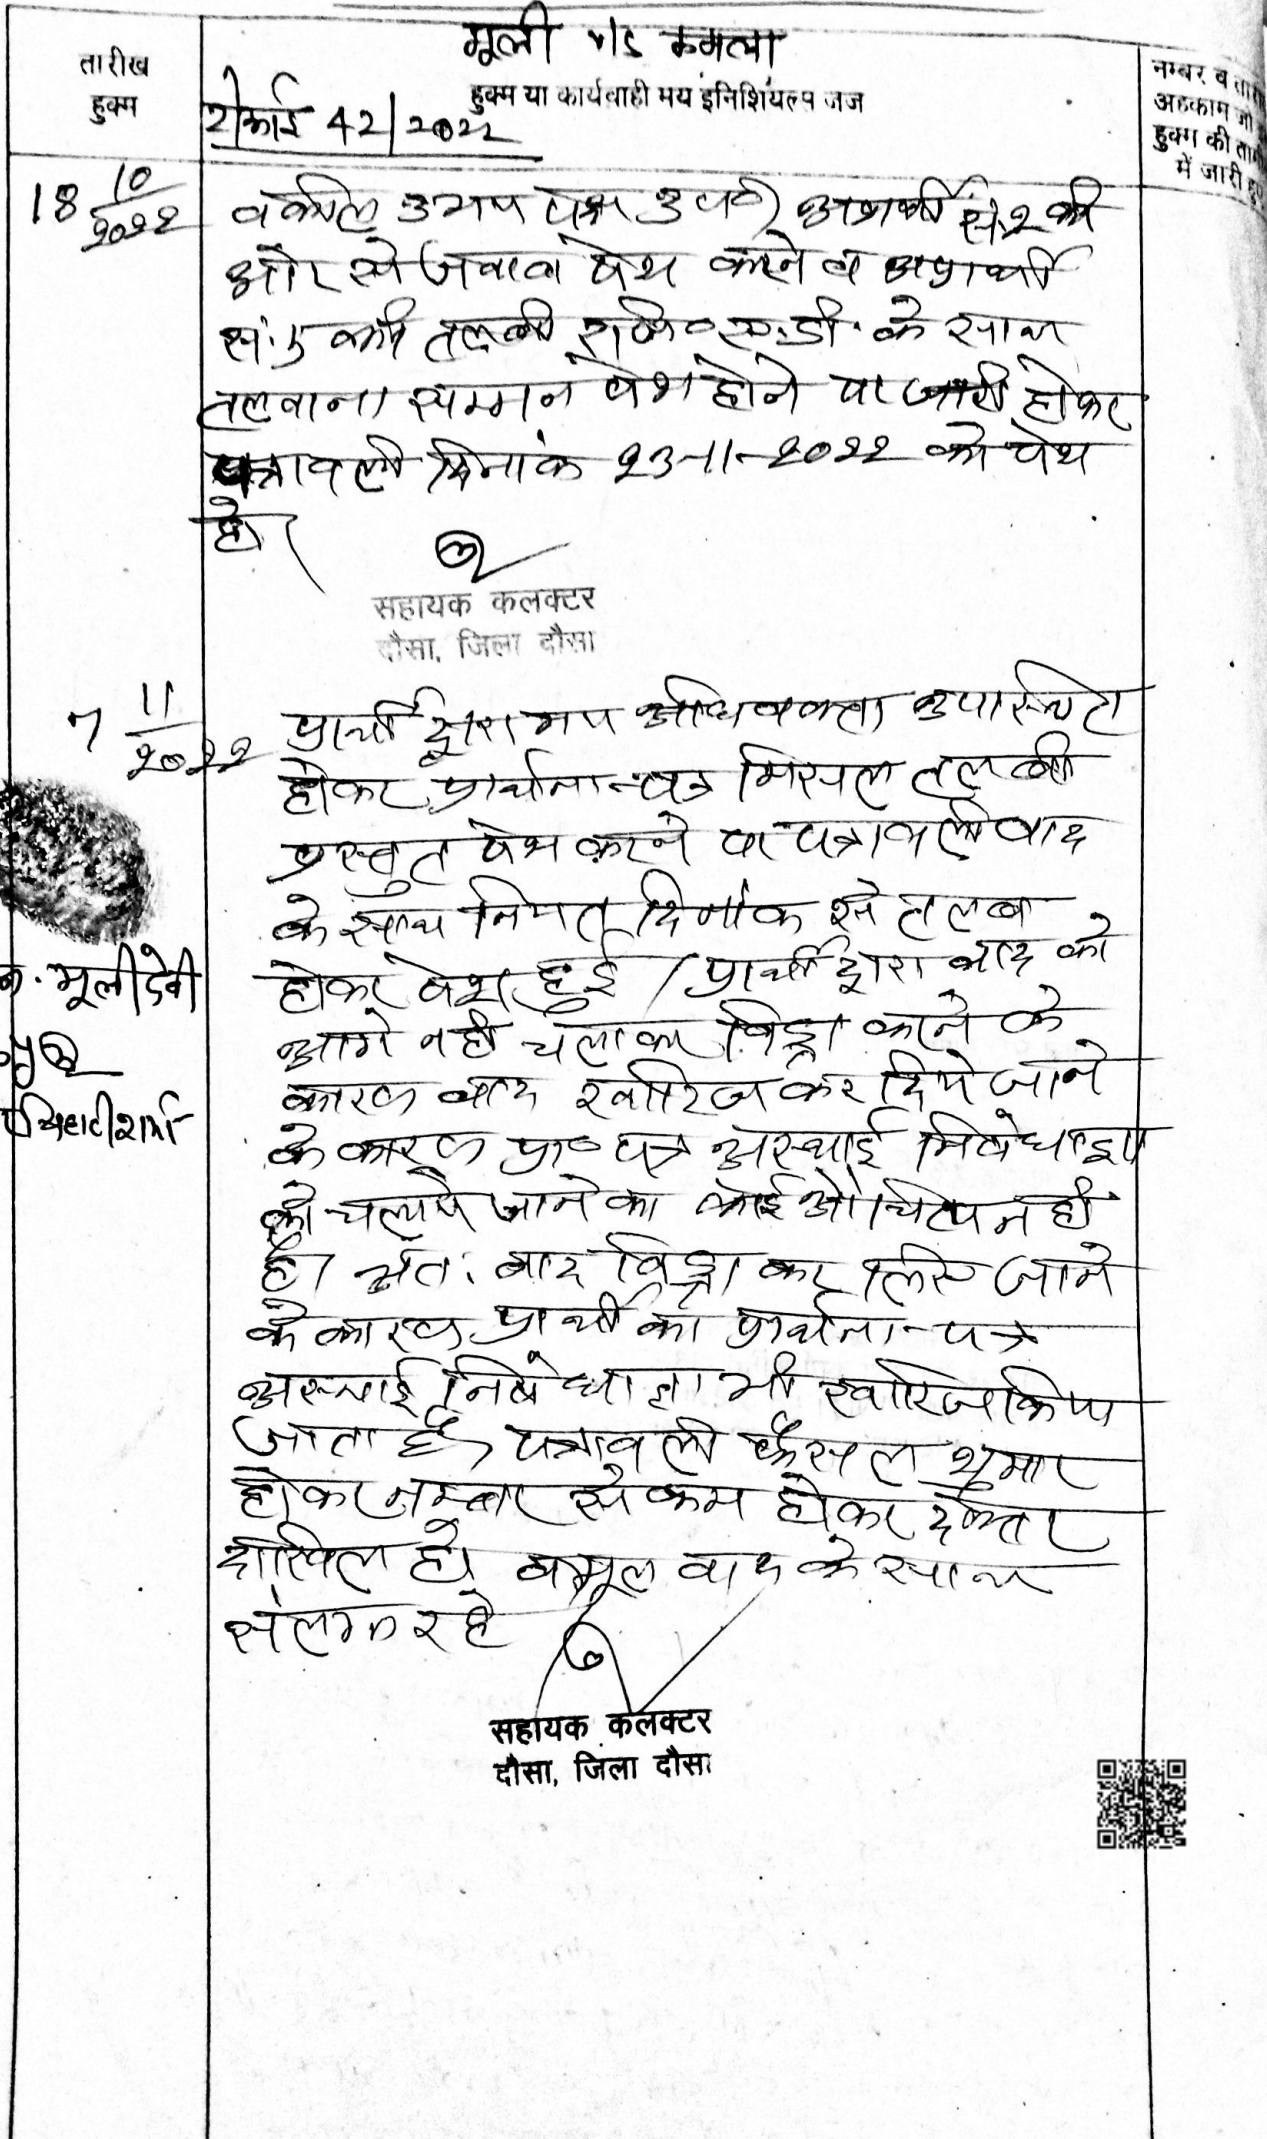 मूली v/s कमला
तारीख
हुक्म
हुक्म या कार्यवाही मय इनिशियल्स जज
नम्बर व
अहकाम जो
हुक्म की
में जारी हुए
42/2022
18 10/2022
वकील उभय पक्ष उप0) अप्रार्थी सं.2 की
ओर से जवाब पेश करने व अप्रार्थी
सं. की तलबी ए.डी. के साथ
तलवाना सम्मन पेश होने पर जारी होकर
पत्रावली दिनांक 23-11-2022 को पेश
हो।
सहायक कलक्टर
दौसा, जिला दौसा
7 11/2022
प्रार्थी द्वारा मय अधिवक्ता उपस्थित
होकर प्रार्थना-पत्र मिसल तलबी
प्रस्तुत पेश करने पर पत्रावली वाद
के साथ नियत दिनांक से तलब
होकर पेश हुई / प्रार्थी द्वारा वाद को
आगे नही चलाकर विड्रा करने के
कारण वाद खारिज कर दिये जाने
के कारण प्रा० पत्र अस्थाई निषेधाज्ञा
को चलाये जाने का कोई औचित्य नही
है। अतः वाद विड्रा कर लिए जाने
के कारण प्रार्थी का प्रार्थना-पत्र
अस्थाई निषेधाज्ञा भी खारिज किया
जाता है, पत्रावली फैसल शुमार
होकर नम्बर से कम होकर दफ्तर
दाखिल हो, व मूल वाद के साथ
संलग्न रहे
मूली देवी
सहायक कलक्टर
दौसा, जिला दौसा